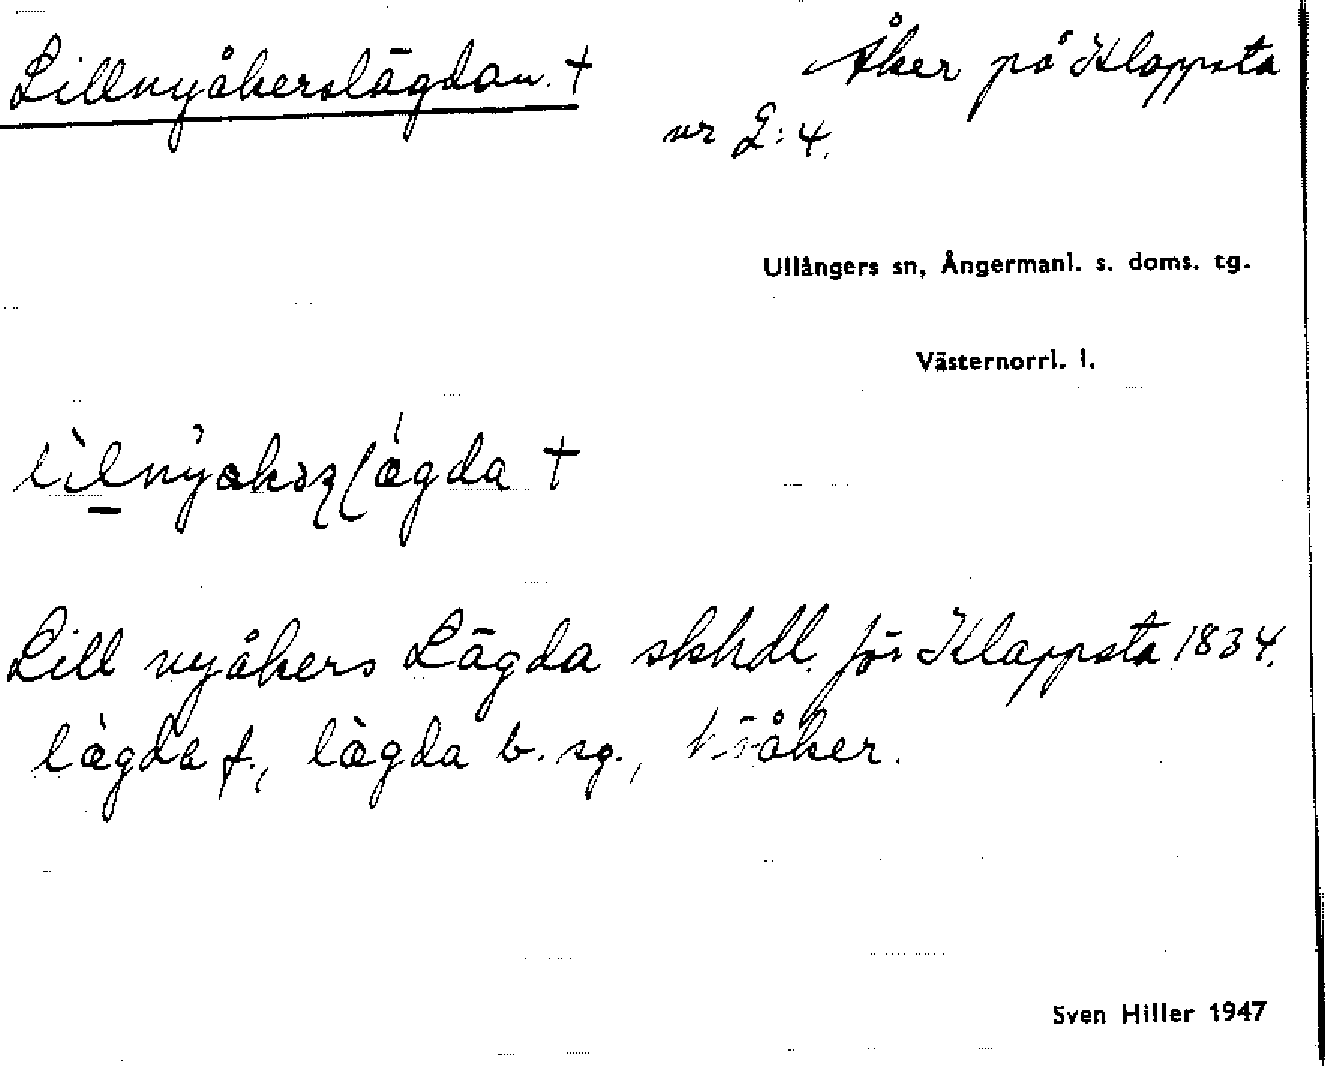 Lillnyåkerslägdan. †
Åker på Klappsta
nr 2:4.
Ullångers sn, Ångermanl. s. doms. tg.
Västernorrl. l.
Lill nyåkers Lägda skhdl. för Klappsta 1834.
lägda f., lägda b. sg., åker.
Sven Hiller 1947